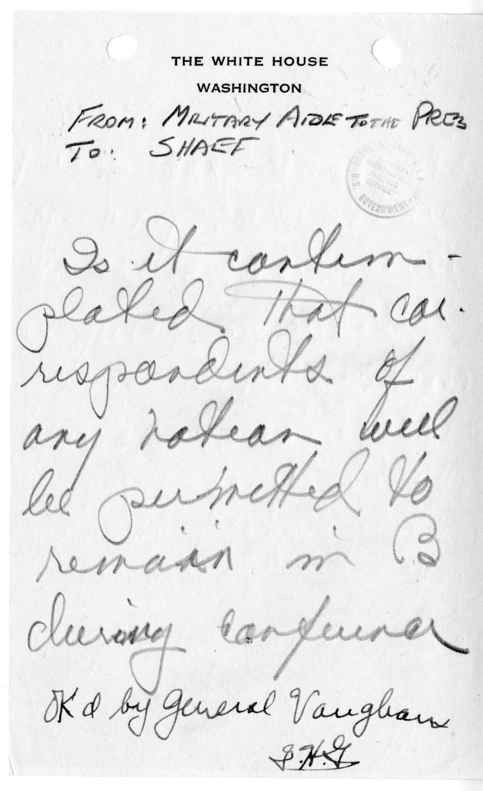 THE WHITE HOUSE
WASHINGTON
FROM: MILITARY AIDE TO THE PRES
TO: SHAEF
Is it contem-
plated that cor-
respondents of
any nation will
be permitted to
remain in B
during conference
OK'd by General Vaughan